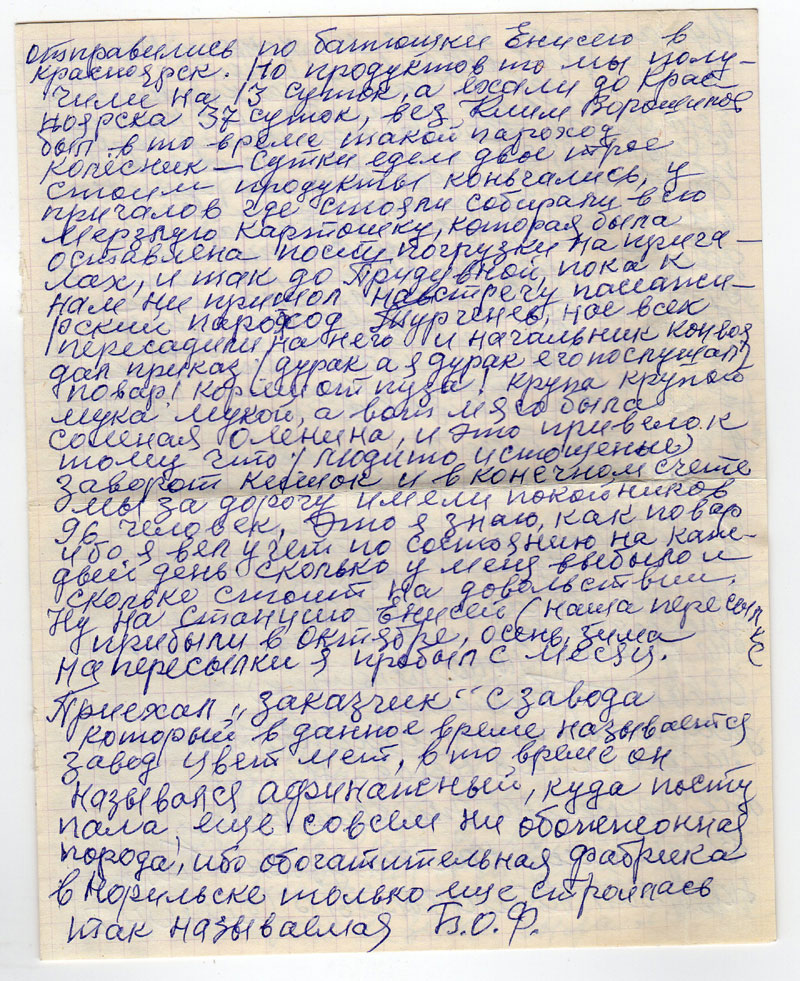 отправились по батюшки Енисею в
Красноярск. Но продуктов то мы полу-
чили на 13 суток, а ехали до Крас-
ноярска 37 суток, вез, Клим Ворошилов
был в то време такой пароход
колёсник — Сутки едем двое трое
стоим продукты коньчались, у
причалов где стояли собирали всю
мерзлую картошку, которая была
оставлена после погрузки на прича-
лах, и так до Придувной, пока к
нам ни пришол навстречу пассажи-
рский пароход Тургенев, нас всех
пересадили на него и начальник конвоя
дал приказ (дурак а я дурак его послушал)
повар! корми от пуза! крупа крупой
мука мукой, а вот мясо была
соленая оленина, и это привело к
тому что (люди то истощеные)
заворот кишок и в конечном счете
мы за дорогу имели покойников
96 человек, Это я знаю, как повар
ибо я вел учет по состоянию на каж-
дый день сколько у меня выбыло и
сколько стоит на довольствии.
Ну на станцию Енисей (наша пересылке
прибыли в октябре, осень, зима
на пересылки я пробыл с месяц.
Приехал „заказчик" с завода
который в данное време называется
завод цвет мет, в то време он
назывался афинажный, куда посту
пала, еще совсем ни обожжонная
порода, ибо обогатительная фабрика
в Норильске только еще строилась
так называемая Б.О.Ф.